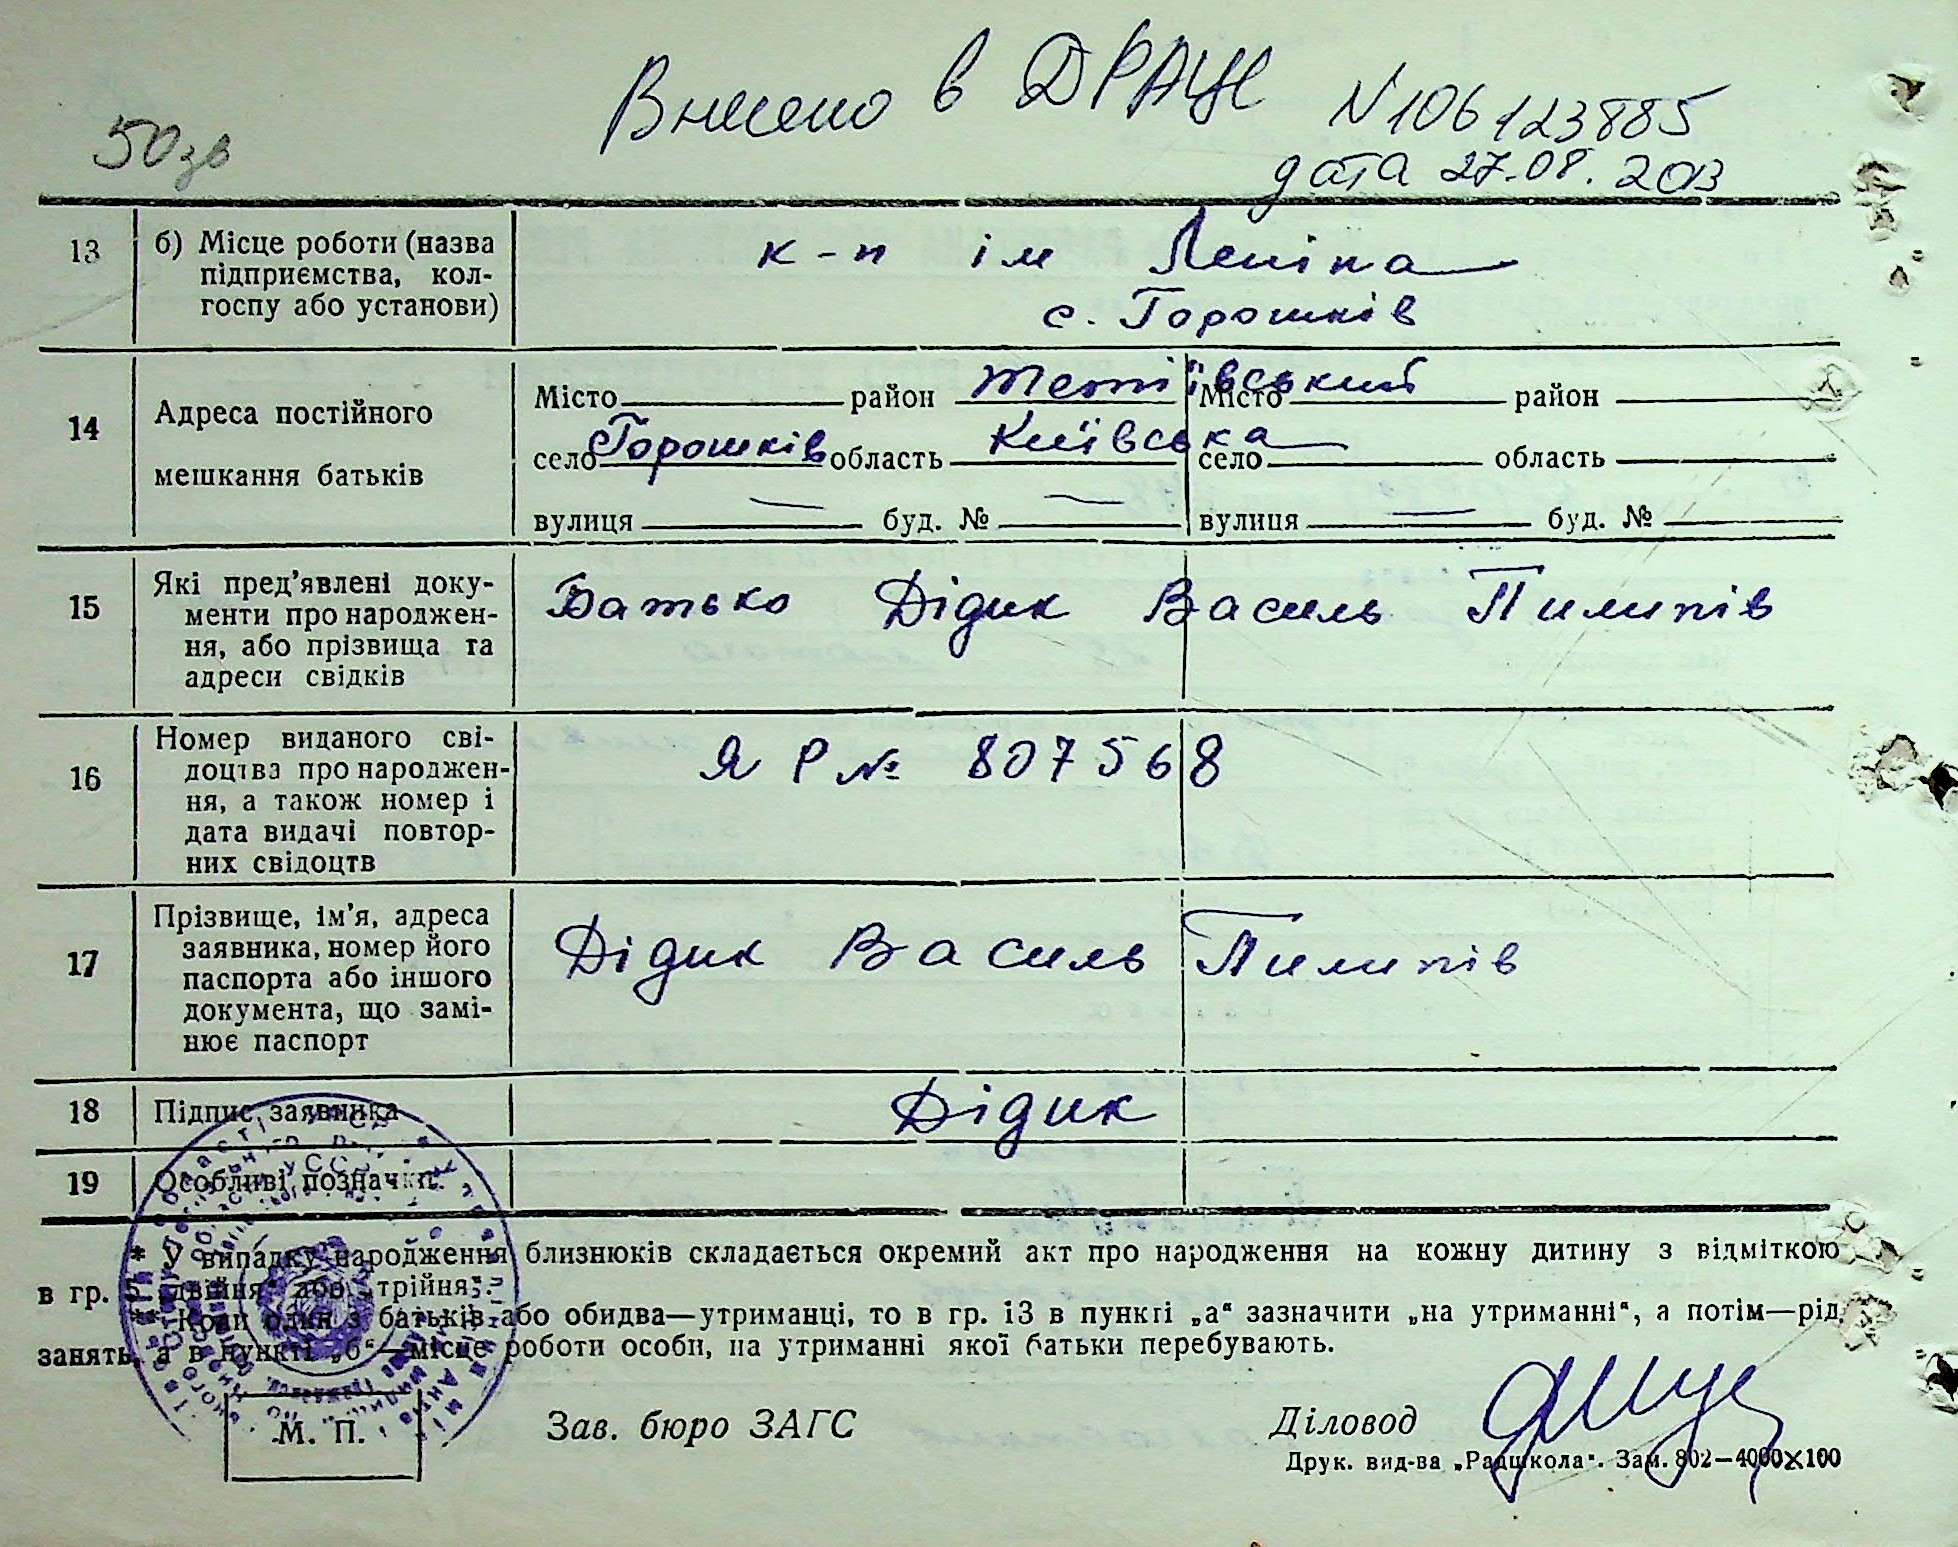 Внесено в ДРАЦС №106123885
50зв
дата 27.08.2013
13 б) Місце роботи (назва підприємства, колгоспу або установи)
к-п ім Леніна
с. Горошків
14 Адреса постійного мешкання батьків
Місто район Тетіївський Місто район
село Горошків область Київська село область
вулиця — буд. № — вулиця — буд. №
15 Які пред'явлені доку-
менти про народжен-
ня, або прізвища та
адреси свідків
Батько Дідик Василь Пилипів
16 Номер виданого сві-
доцтва про народжен-
ня, а також номер і
дата видачі повтор-
них свідоцтв
ЯР № 807568
17 Прізвище, ім'я, адреса
заявника, номер його
паспорта або іншого
документа, що замі-
нює паспорт
Дідик Василь Пилипів
18 Підпис заявника Дідик
19 Особливі позначки
* У випадку народження близнюків складається окремий акт про народження на кожну дитину з відміткою
в гр. 5 „двійня" або „трійня".
** Коли один з батьків або обидва—утриманці, то в гр. 13 в пункті „а" зазначити „на утриманні", а потім—рід
занять, а в пункті „б"—місце роботи особи, на утриманні якої батьки перебувають.
М. П. Зав. бюро ЗАГС Діловод
Друк. вид-ва „Радшкола". Зам. 802—4000×100